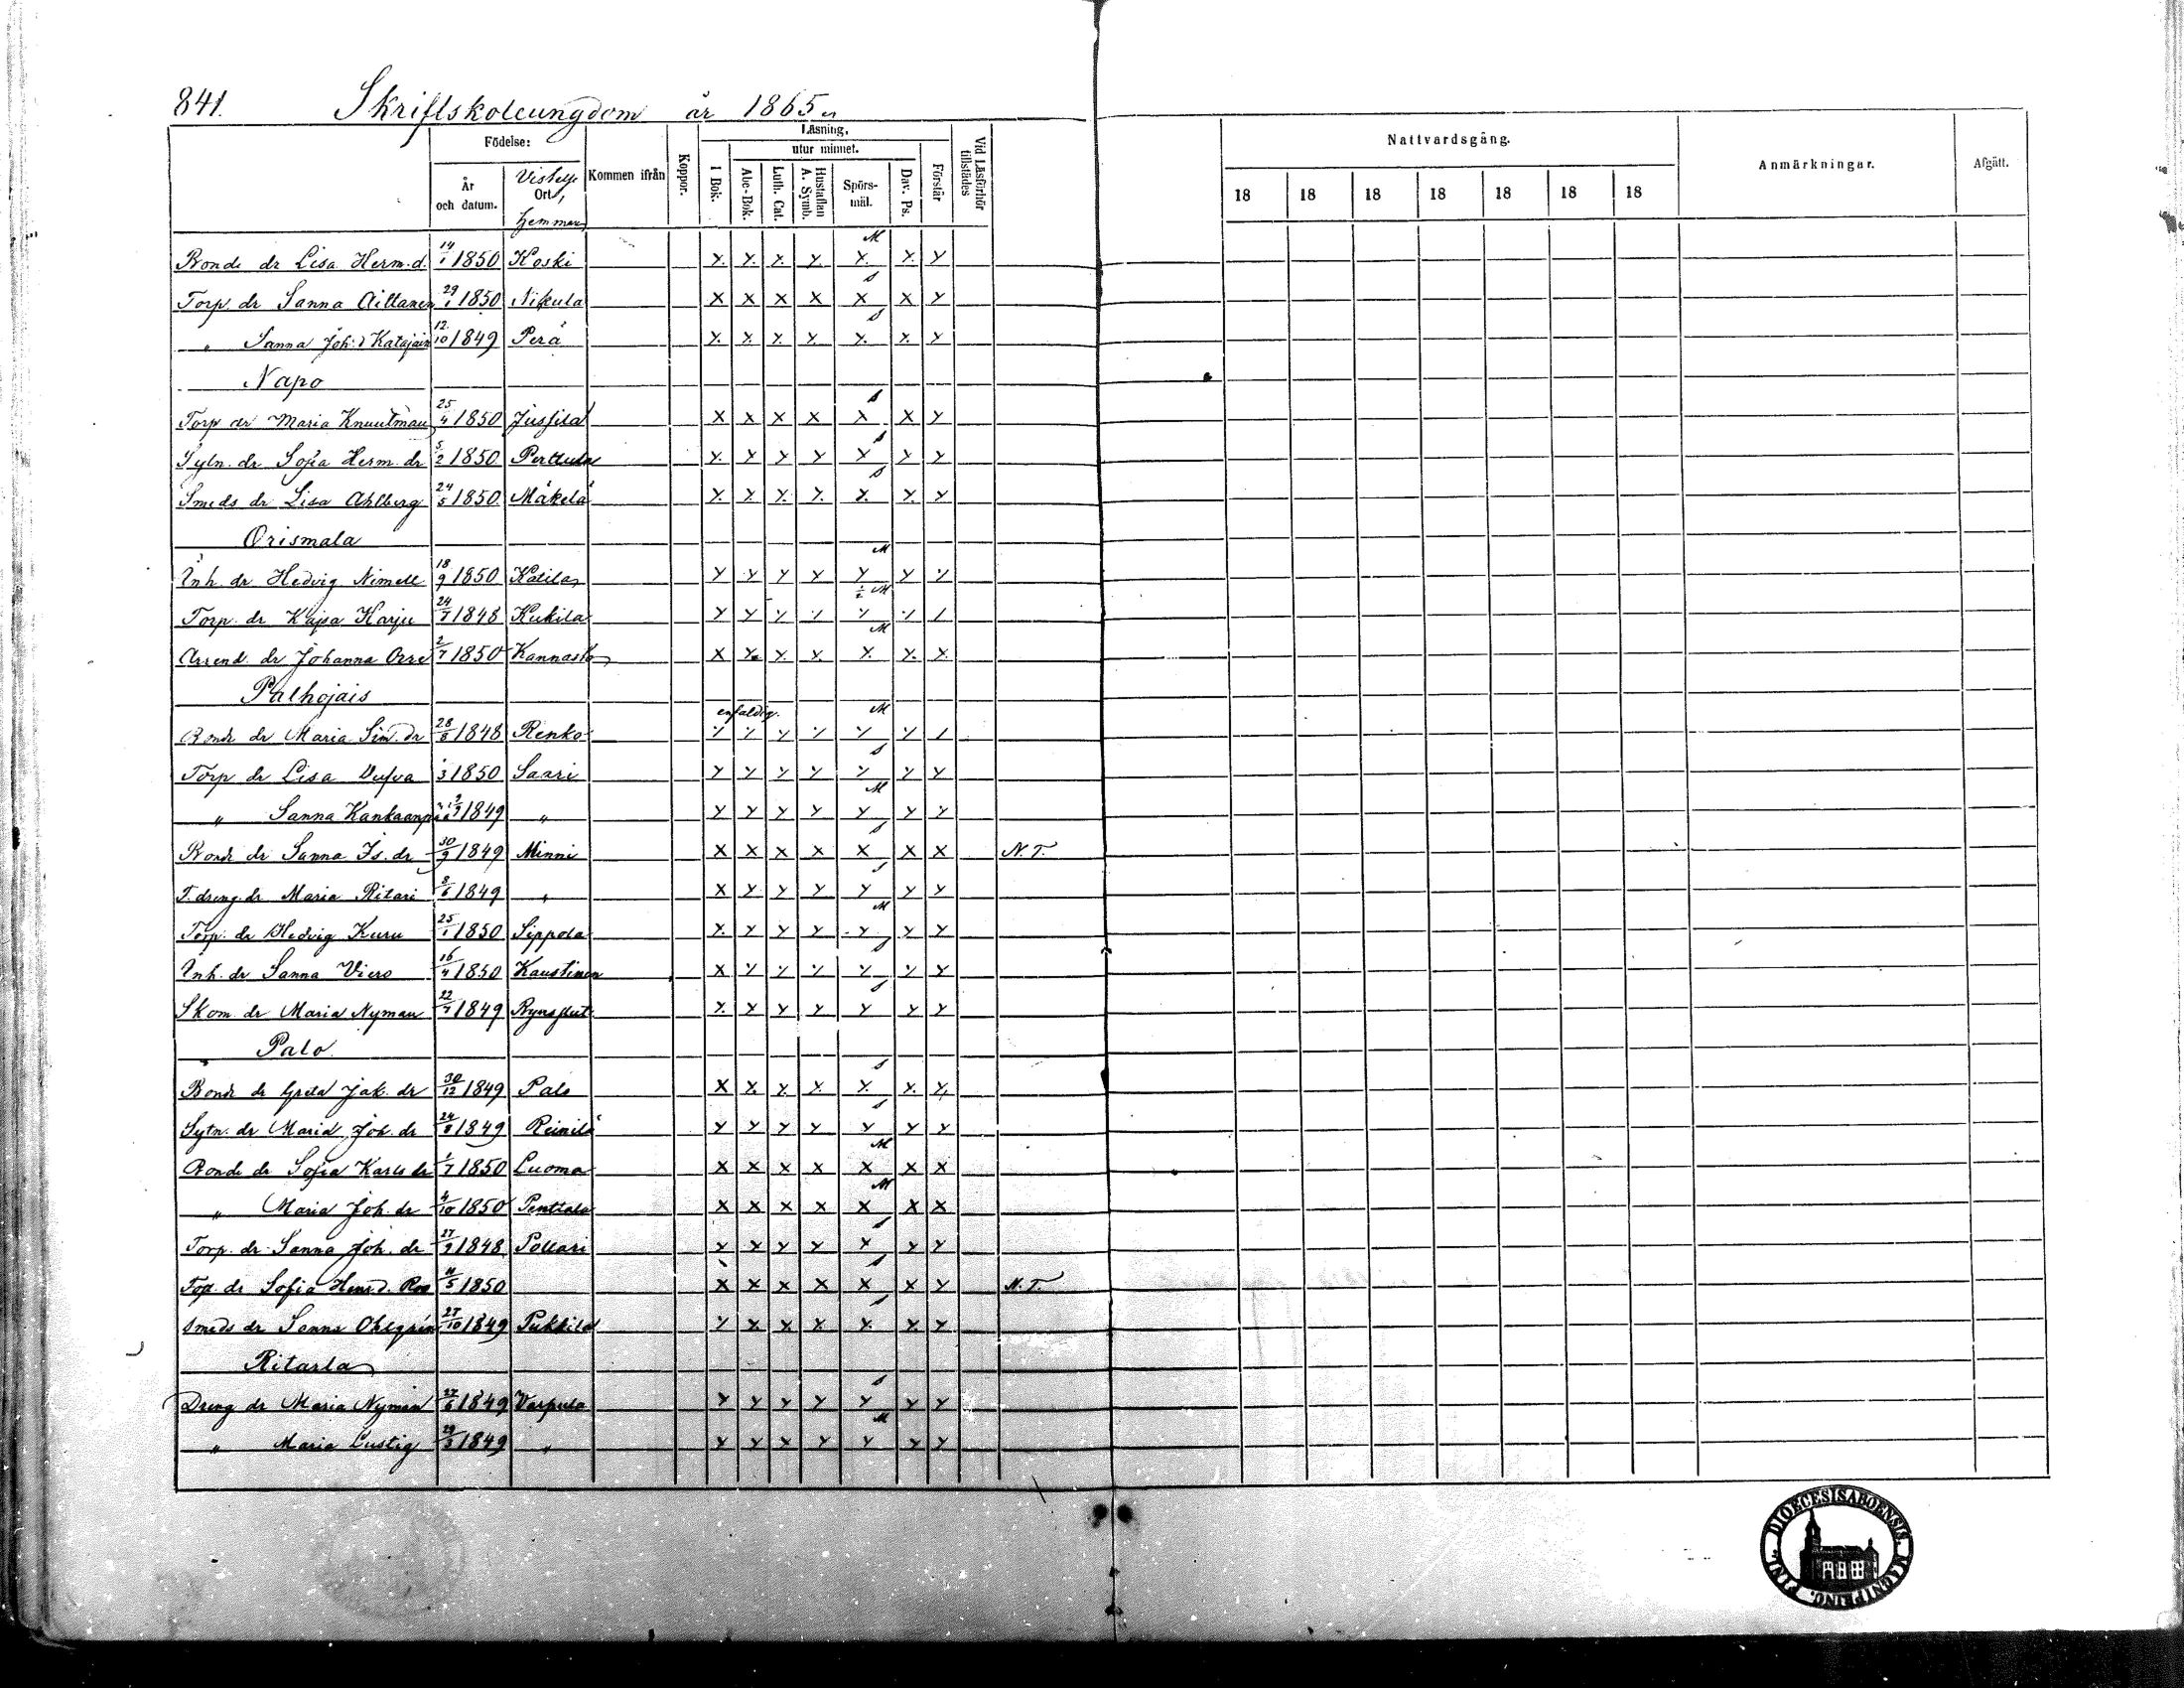 841. Skriftskoleungdom år 1865
Födelse: Kommen ifrån Koppor. Läsning. Vid Läsförhör tillstädes Nattvardsgång. Anmärkningar. Afgått.
År och datum. Vistelse Ort, hemman I Bok. utur minnet. Abc-Bok. Luth. Cat. Hustaflan A. Symb. Spörsmål. Dav. Ps. Förstår 18 18 18 18 18 18 18
Bonde dr Lisa Herm. d. 14/1 1850 Koski
Torp. dr Sanna Aittanen 29/1 1850 Nikula
" Sanna Joh. d Katajain 12/10 1849 Perä
Napo
Torp dr Maria Knuutman 25/4 1850 Jussila
Sytn. dr Sofia Herm. dr 5/2 1850 Perttula
Smeds dr Lisa Ahlberg 24/5 1850 Mäkelä
Orismala
Inh. dr Hedvig Nimell 18/9 1850 Katila
Torp. dr Kajsa Harju 24/7 1848 Kukila
Arrend. dr Johanna Orre 2/7 1850 Kannasto
Palhojais
enfaldig.
Bonde dr Maria Sim. dr 28/8 1848 Renko
Torp dr Lisa Dufva 1/3 1850 Saari
" Sanna Kankaanpää 1849 "
Bonde dr Sanna Is. dr 30/9 1849 Minni N. T.
T. dreng dr Maria Ritari 8/6 1849 "
Torp. dr Hedvig Kuru 25/1 1850 Sippola
Inh. dr Sanna Viero 16/4 1850 Kaustinen
Skom. dr Maria Nyman 22/7 1849
Palo
Bonde dr Greta Jak. dr 30/12 1849 Palo
Sytn. dr Maria Joh. dr 24/8 1849 Reinilä
Bonde dr Sofia Karls dr 1/7 1850 Luoma
" Maria Joh. dr 4/10 1850 Penttala
Torp. dr Sanna Joh. dr 27/9 1848 Pollari
Torp. dr Sofia Henr. d. 11/5 1850 N. T.
Smeds dr Sanna Ohlgrén 27/10 1849 Pukkila
Ritarla
Dreng dr Maria Nyman 27/6 1849 Varpula
" Maria Lustig 29/3 1849 "
DIOECESIS ABOENSIS. MAGNI PRINC. FINL.